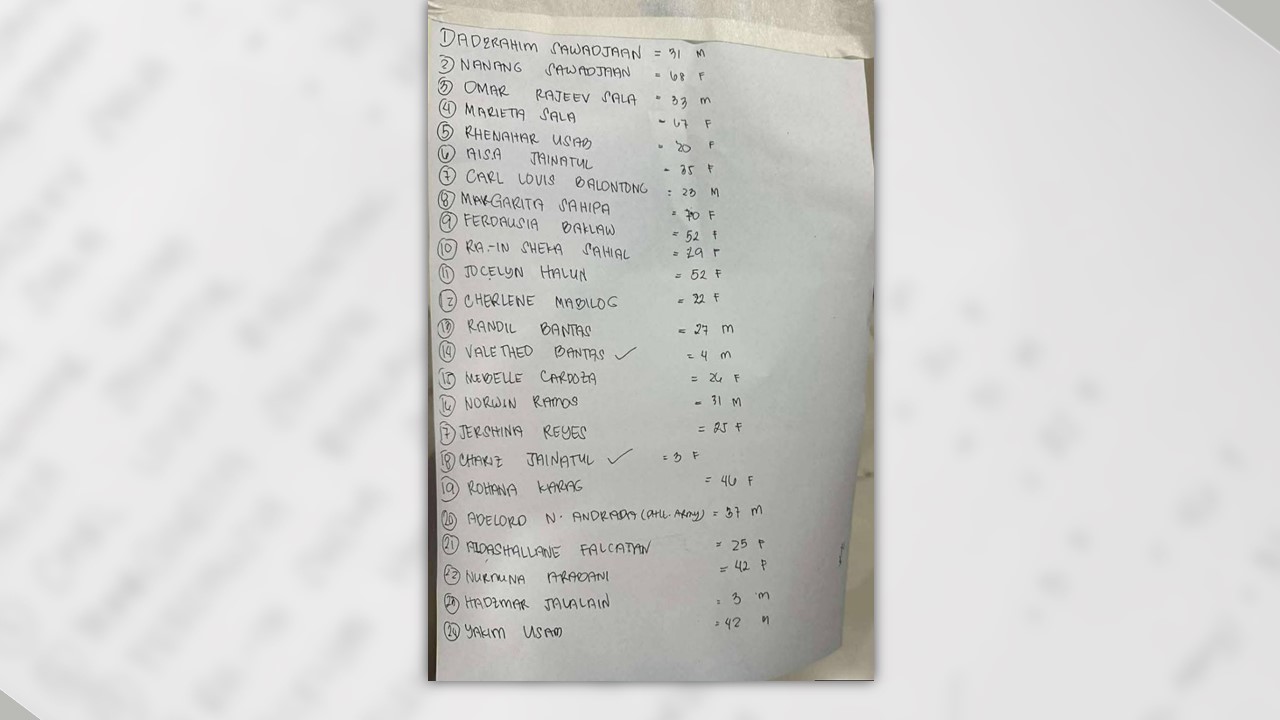 DADZRAHIM SAWADJAAN = 31 M
② NANANG SAWADJAAN = 68 F
③ OMAR RAJEEV SALA = 33 M
④ MARIETA SALA - 67 F
⑤ RHENAHAR USAB = 20 F
⑥ AISA JAINATUL - 35 F
⑦ CARL LOUIS BALONTONG = 23 M
⑧ MARGARITA SAHIPA = 70 F
⑨ FERDAUSIA BAKLAW = 52 F
⑩ RA-IN SHEKA SAHIAL = 29 F
⑪ JOCELYN HALUN = 52 F
⑫ CHERLENE MABILOG = 22 F
⑬ RANDIL BANTAS = 27 M
⑭ VALETHEO BANTAS ✓ = 4 M
⑮ MEDELLE CARDOZA = 26 F
⑯ NORWIN RAMOS = 31 M
⑰ JERSHINA REYES = 25 F
⑱ CHARIZ JAINATUL ✓ = 3 F
⑲ ROHANA KARAG = 46 F
⑳ ADELORD N. (PHIL. ARMY) = 37 M
㉑ FALCATAN = 25 F
㉒ = 42 F
㉓ HADZMAR JALALAIN = 3 M
㉔ YAKIM USAB = 42 M